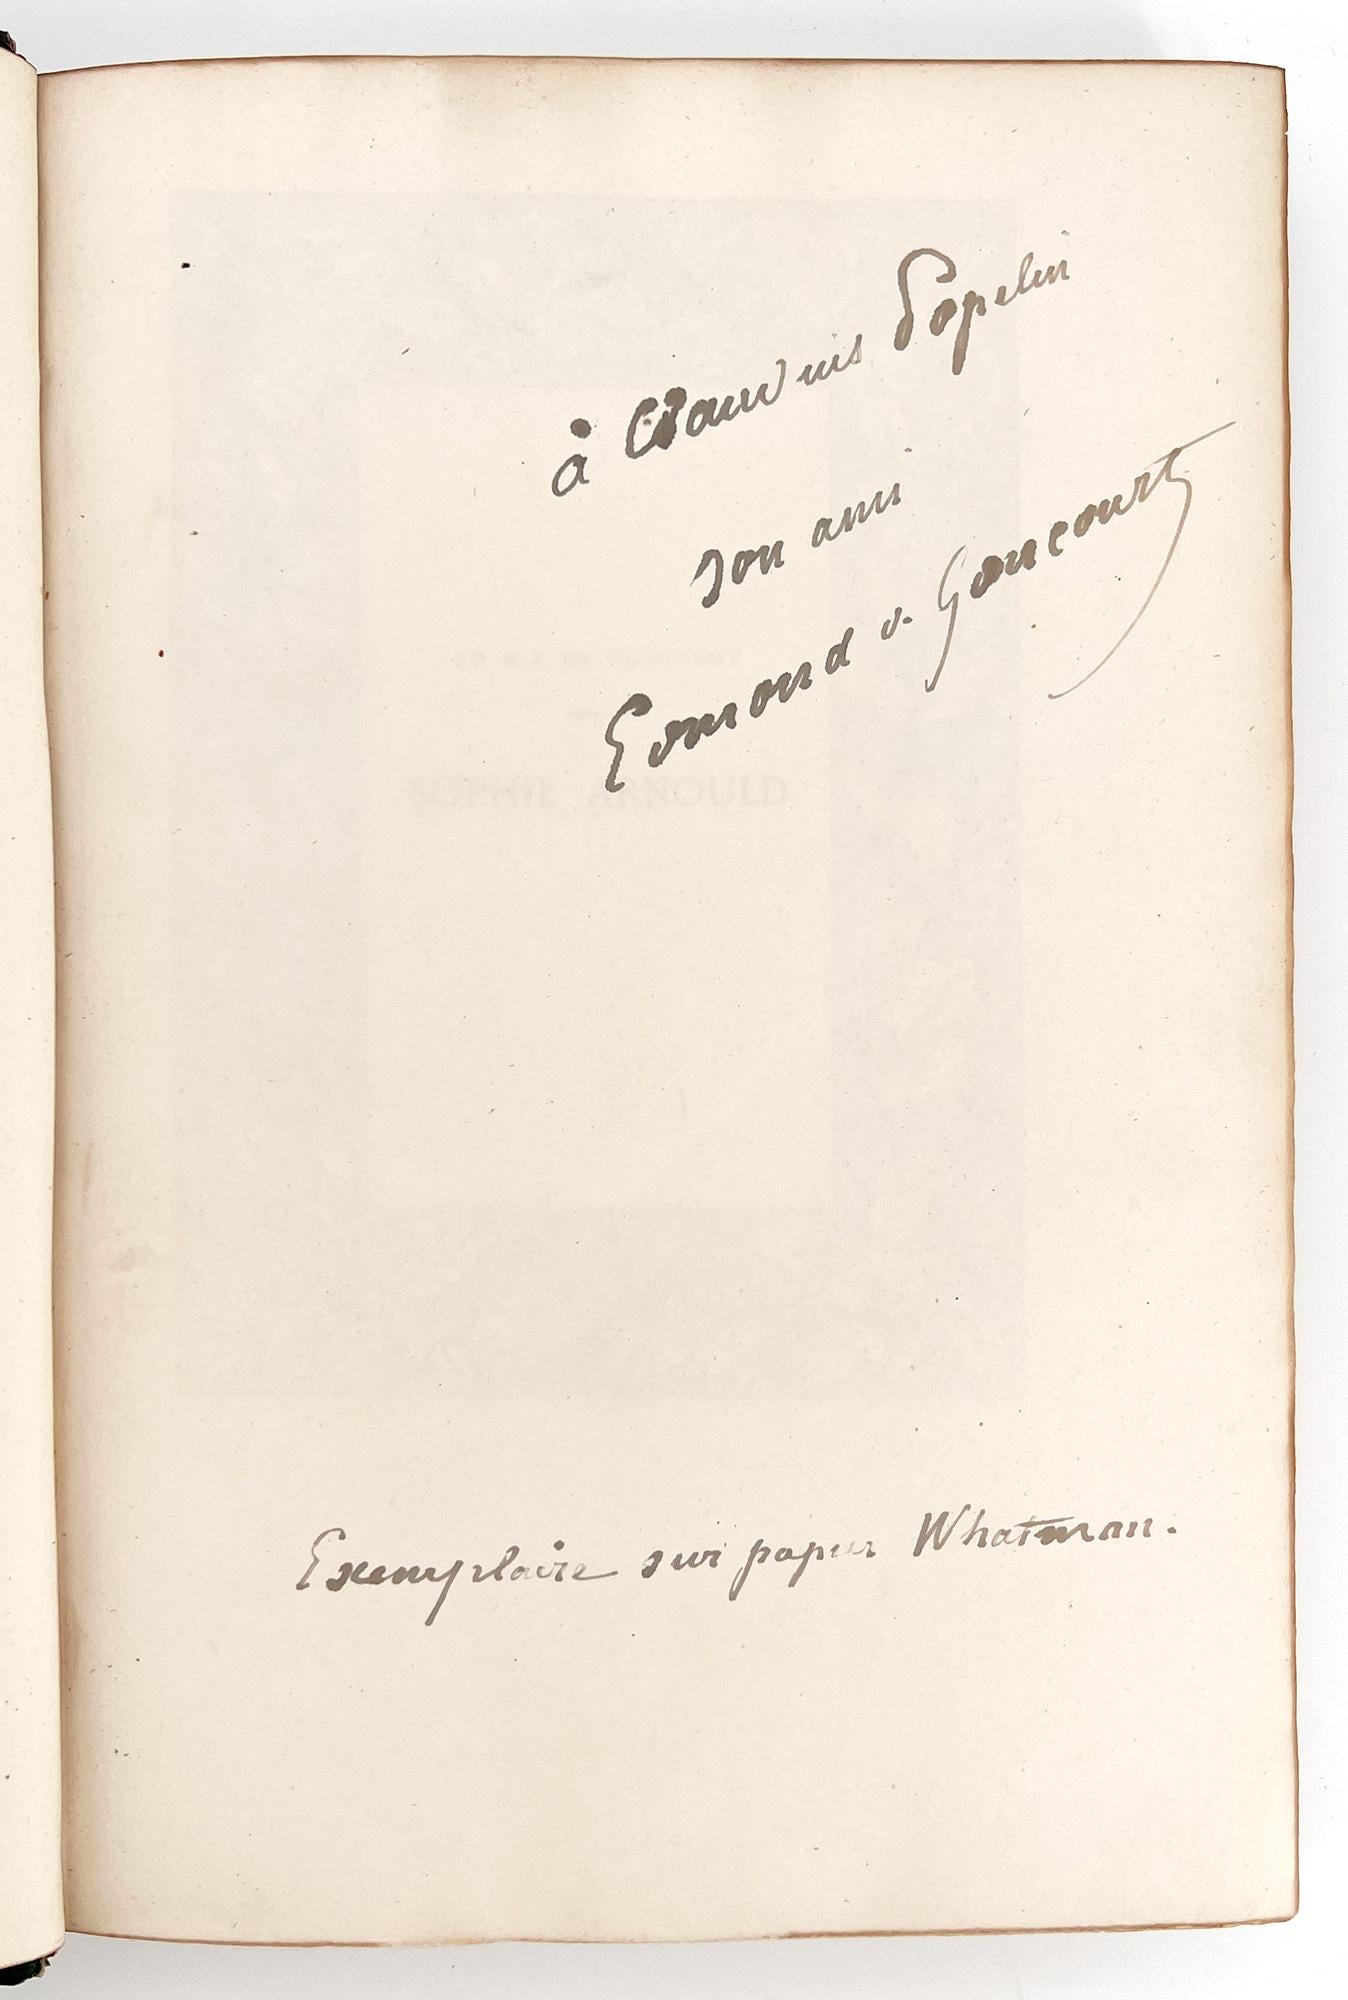 à Claudius Popelin
son ami
Edmond d. Goncourt
SOPHIE ARNOULD
Exemplaire sur papier Whatman.